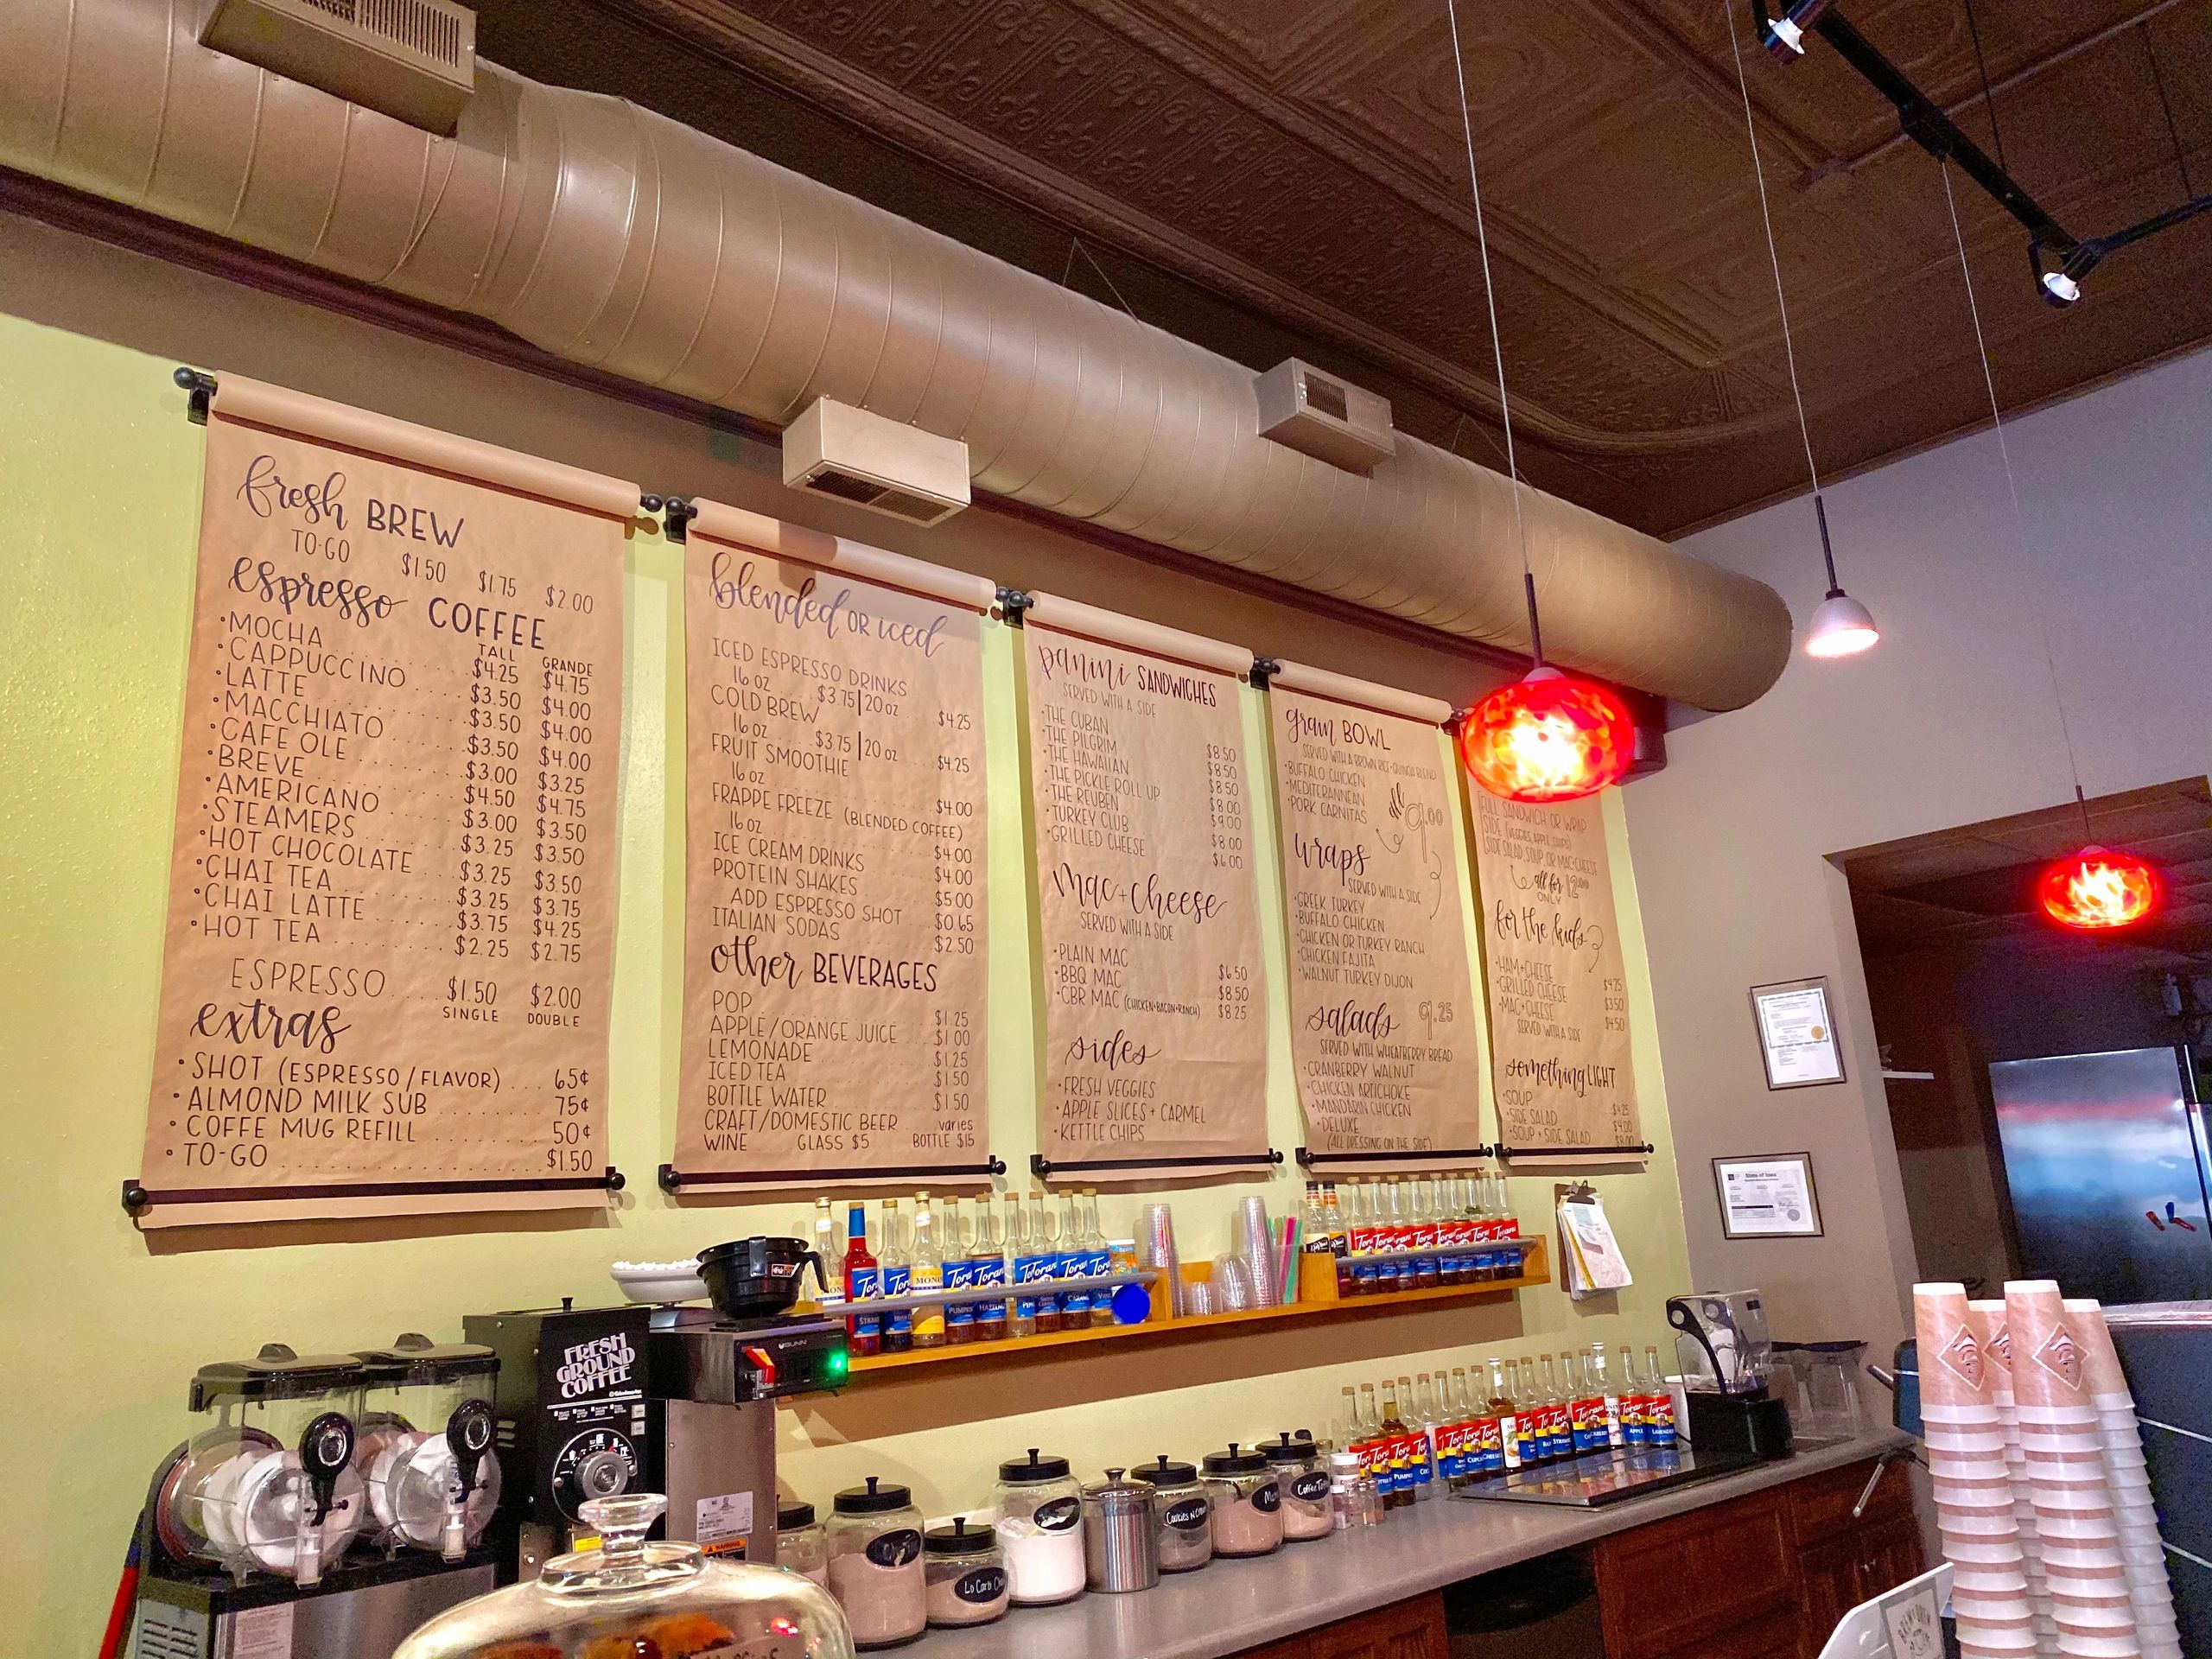 fresh BREW
TO-GO $1.50 $1.75 $2.00
espresso COFFEE
TALL GRANDE
•MOCHA $4.25 $4.75
•CAPPUCCINO $3.50 $4.00
•LATTE $3.50 $4.00
•MACCHIATO $3.50 $4.00
•CAFE OLE $3.00 $3.25
•BREVE $4.50 $4.75
•AMERICANO $3.00 $3.50
•STEAMERS $3.25 $3.50
•HOT CHOCOLATE $3.25 $3.50
•CHAI TEA $3.25 $3.75
•CHAI LATTE $3.75 $4.25
•HOT TEA $2.25 $2.75
ESPRESSO $1.50 $2.00
SINGLE DOUBLE
extras
•SHOT (ESPRESSO/FLAVOR) ... 65¢
•ALMOND MILK SUB 75¢
•COFFE MUG REFILL 50¢
•TO-GO $1.50
blended OR iced
ICED ESPRESSO DRINKS
16 oz $3.75 | 20 oz $4.25
COLD BREW
16 oz $3.75 | 20 oz $4.25
FRUIT SMOOTHIE
16 oz $4.00
FRAPPE FREEZE (BLENDED COFFEE)
16 oz $4.00
ICE CREAM DRINKS $4.00
PROTEIN SHAKES $5.00
ADD ESPRESSO SHOT $0.65
ITALIAN SODAS $2.50
other BEVERAGES
POP $1.25
APPLE/ORANGE JUICE $1.00
LEMONADE $1.25
ICED TEA $1.50
BOTTLE WATER $1.50
CRAFT/DOMESTIC BEER varies
WINE GLASS $5 BOTTLE $15
panini SANDWICHES
SERVED WITH A SIDE
•THE CUBAN $8.50
•THE PILGRIM $8.50
•THE HAWAIIAN $8.50
•THE PICKLE ROLL UP $8.00
•THE REUBEN $9.00
•TURKEY CLUB $8.00
•GRILLED CHEESE $6.00
Mac+Cheese
SERVED WITH A SIDE
•PLAIN MAC $6.50
•BBQ MAC $8.50
•CBR MAC (CHICKEN+BACON+RANCH) $8.25
sides
•FRESH VEGGIES
•APPLE SLICES + CARMEL
•KETTLE CHIPS
grain BOWL
SERVED WITH A BROWN RICE+QUINOA BLEND
•BUFFALO CHICKEN
•MEDITERANNEAN
•PORK CARNITAS
all 9.00
wraps
SERVED WITH A SIDE
•GREEK TURKEY
•BUFFALO CHICKEN
•CHICKEN OR TURKEY RANCH
•CHICKEN FAJITA
•WALNUT TURKEY DIJON
salads 9.25
SERVED WITH WHEATBERRY BREAD
•CRANBERRY WALNUT
•CHICKEN ARTICHOKE
•MANDARIN CHICKEN
•DELUXE
(ALL DRESSING ON THE SIDE)
FULL SANDWICH OR WRAP
SIDE (VEGGIES, APPLE, CHIPS)
SIDE SALAD, SOUP, OR MAC+CHEESE
all for 12.00
ONLY
for the kids
•HAM+CHEESE $4.25
•GRILLED CHEESE $3.50
•MAC+CHEESE $4.50
SERVED WITH A SIDE
something LIGHT
•SOUP $4.25
•SIDE SALAD $4.00
•SOUP + SIDE SALAD $8.00
State of Iowa
Torani
Torani
FRESH
GROUND
COFFEE
Grindmaster
BUNN
WARNING
Lo Carb
Cookies N
Coffee